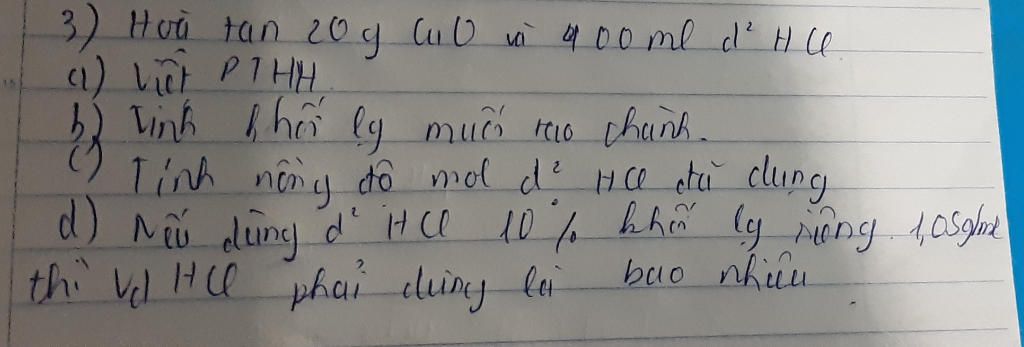 3) Hoà tan 20g CuO và 400ml d² HCl
a) Viết PTHH
b) Tính khối lg muối tạo thành.
c) Tính nồng độ mol d² HCl đã dùng
d) Nếu dùng d² HCl 10% khối lg riêng 1,05g/ml
thì Vd HCl phải dùng là bao nhiêu